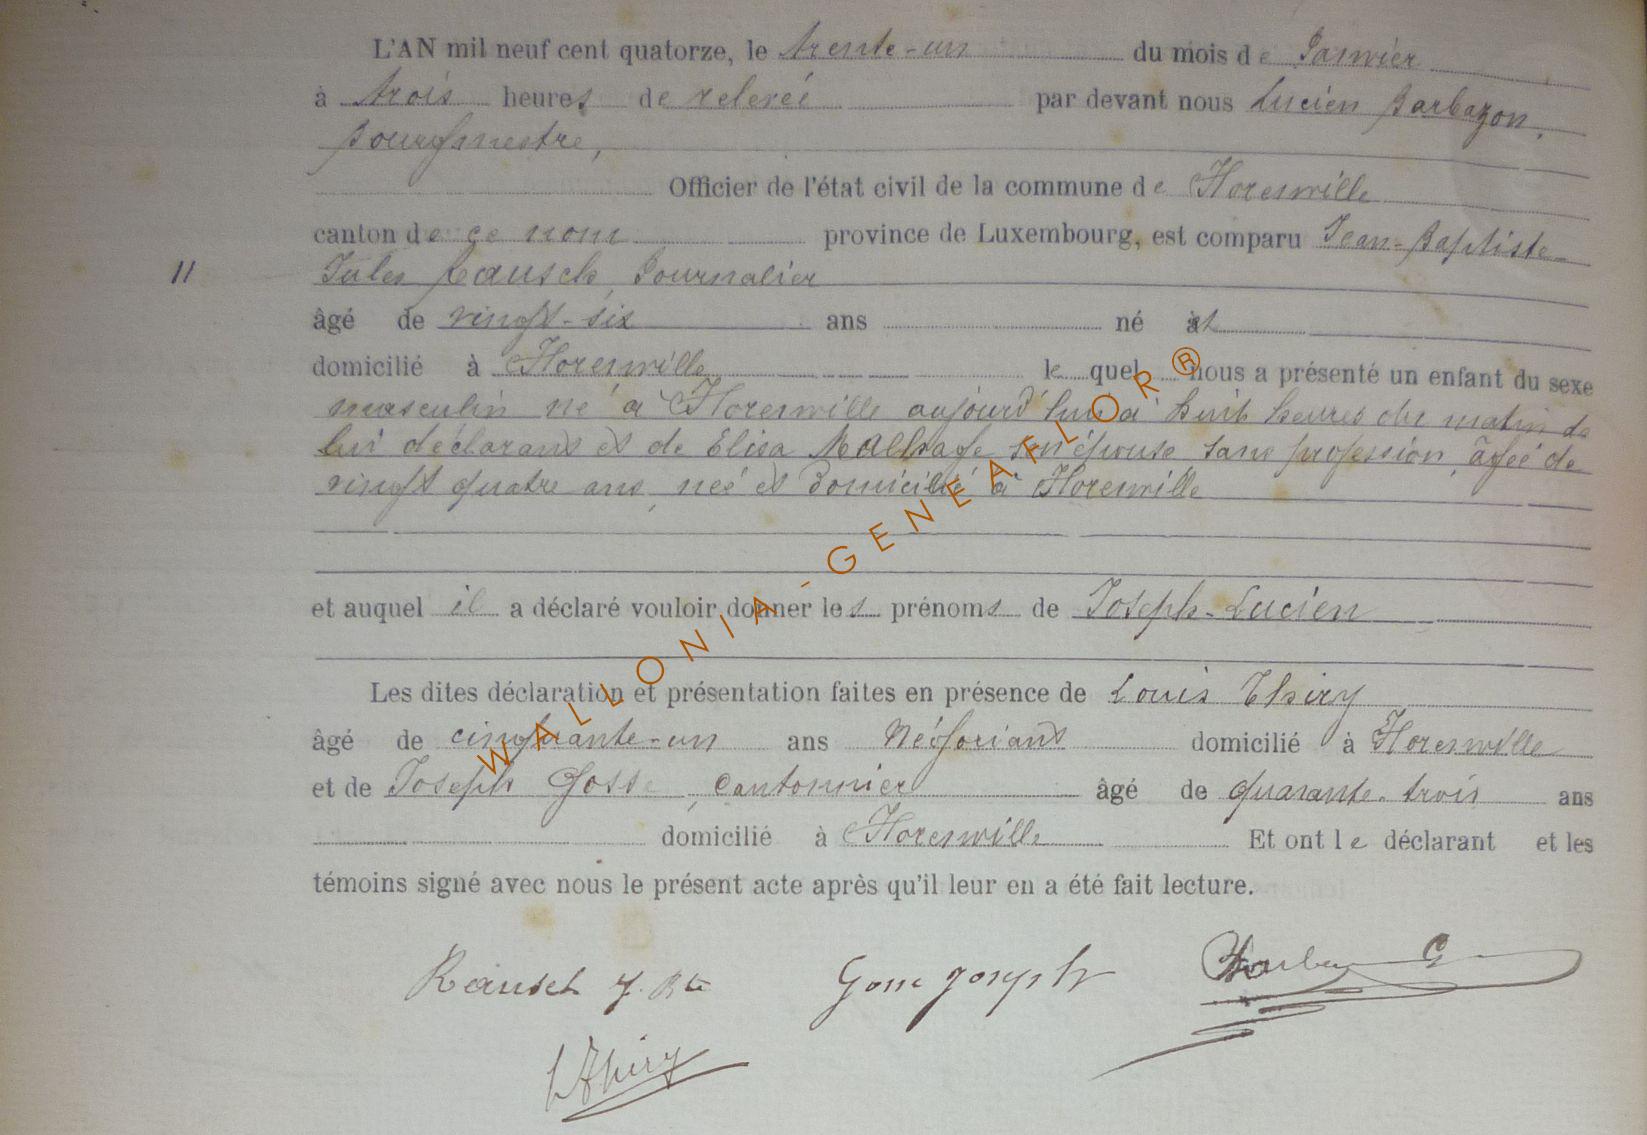 L'AN mil neuf cent quatorze, le trente-un du mois de Janvier
à trois heures de relevée par devant nous Lucien Barbazon,
Bourgmestre,
Officier de l'état civil de la commune de Florenville
canton de ce nom province de Luxembourg, est comparu Jean-Baptiste
11 Jules Rausch, Journalier
âgé de vingt-six ans né et
domicilié à Florenville lequel nous a présenté un enfant du sexe
masculin né à Florenville aujourd'hui à huit heures du matin de
lui déclarant et de Elisa son épouse sans profession, âgée de
vingt quatre ans, née et domiciliée à Florenville
et auquel il a déclaré vouloir donner les prénoms de Joseph-Lucien
Les dites déclaration et présentation faites en présence de Louis Thiry
âgé de cinquante-un ans Négociant domicilié à Florenville
et de Joseph Gosse, Cantonnier âgé de quarante-trois ans
domicilié à Florenville Et ont le déclarant et les
témoins signé avec nous le présent acte après qu'il leur en a été fait lecture.
Rausch J. Bte Gosse Joseph
L Thiry
WALLONIA-GENEAFLOR®